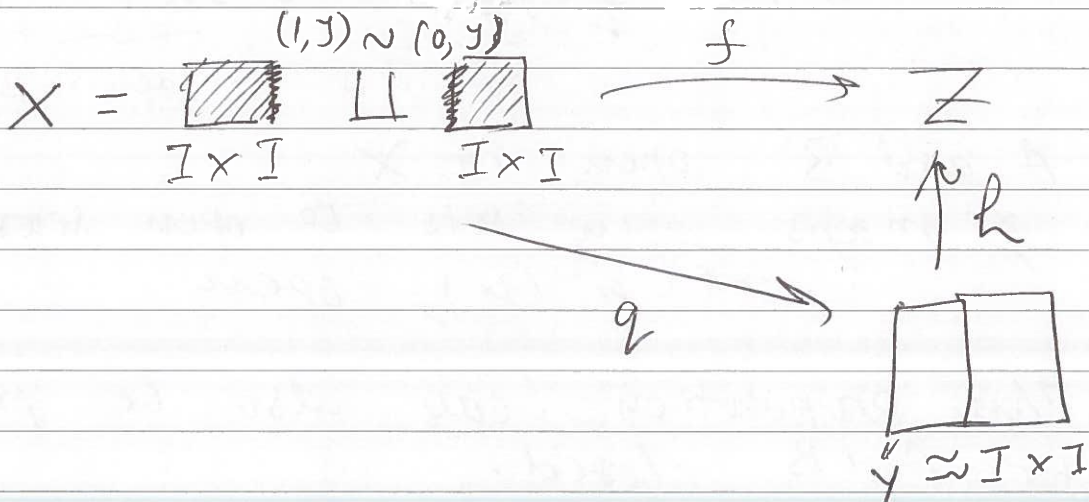 (1, y) ~ (0, y)
X = ⊔ f Z
I × I I × I
h
q
Y ≈ I × I